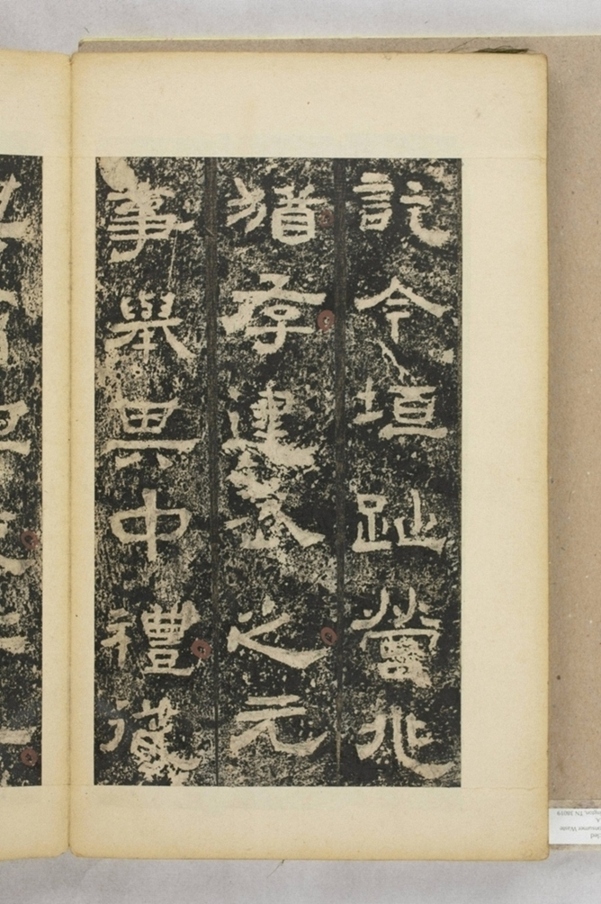 訖今垣趾營兆
猶存建武之元
事舉其中禮從